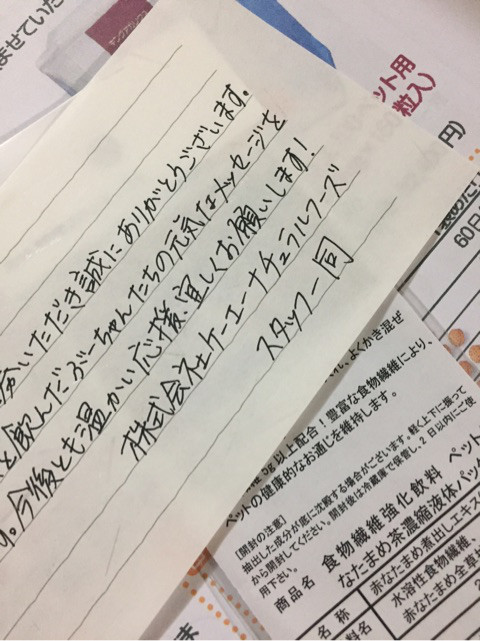 ませていた
ット用
粒入）
円）
60日
いただき誠にありがとうございます。
飲んだぶーちゃんたちの元気なメッセージを
今後とも温かい応援、宜しくお願いします！
株式会社ケーエーナチュラルフーズ
スタッフ一同
よくかき混ぜ
5g以上配合！豊富な食物繊維により、
ペットの健康的なお通じを維持します。
[開封の注意]
抽出した成分が底に沈殿する場合がございます。軽く上下に振って
から開封してください。開封後は冷蔵庫で保管し、2日以内にご使
用下さい。
食物繊維強化飲料 ペット
商品名 なたまめ茶濃縮液体パッ
名 称 赤なたまめ煮出しエキス
水溶性食物繊維、
料名 赤なたまめ全草